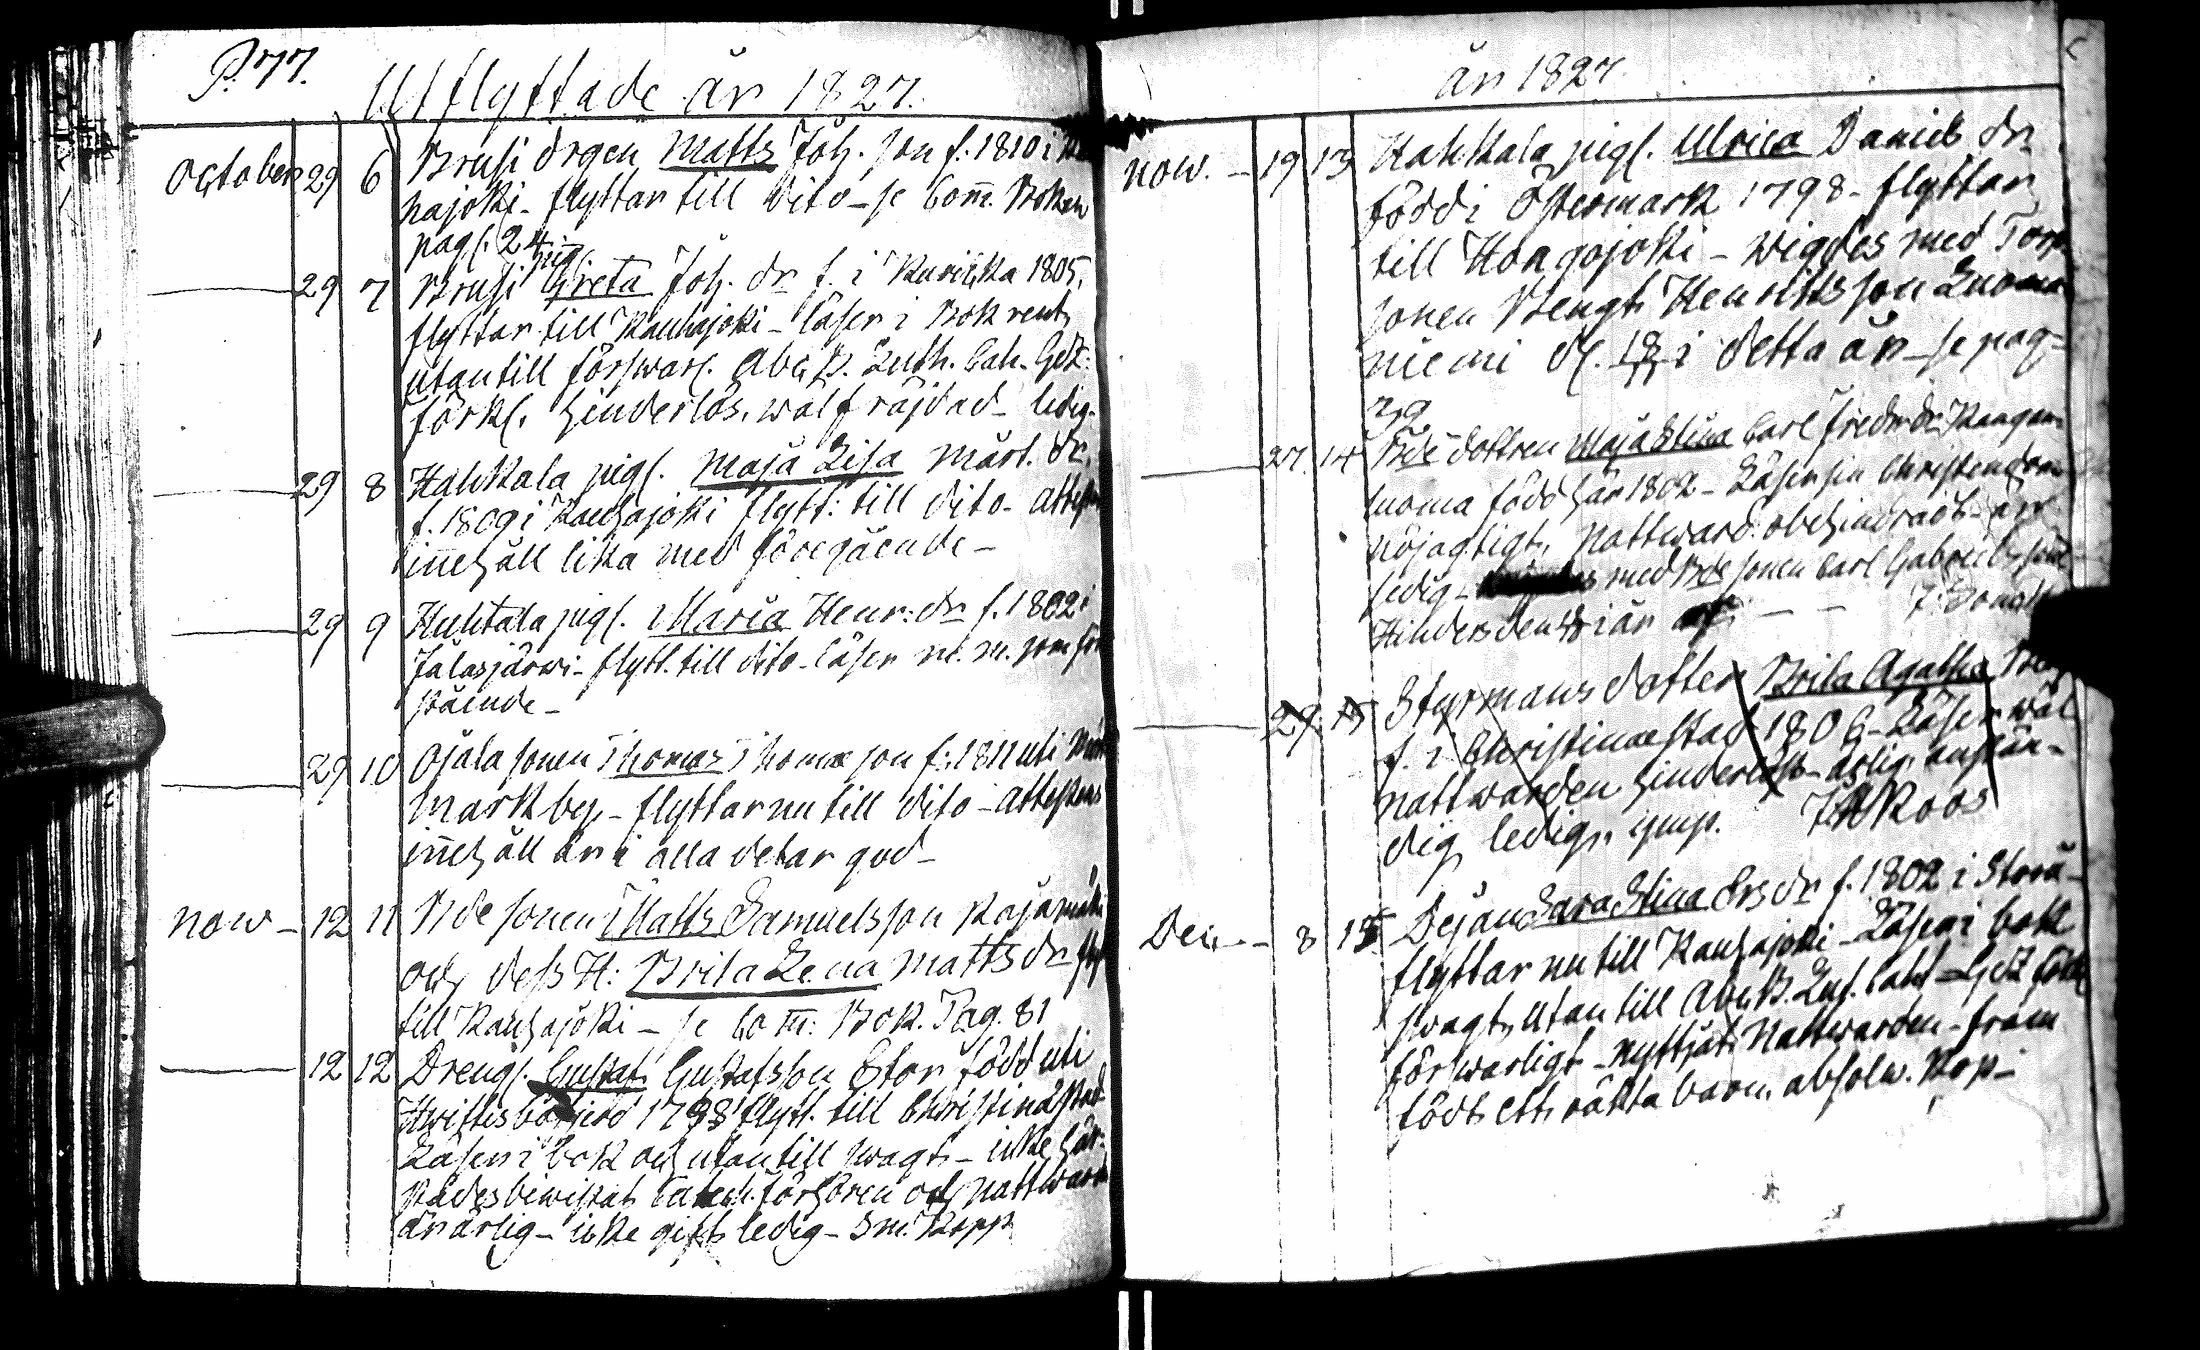 P. 77.
Utflyttade år 1827.
October 29 6 Brusi drgen Matts Joh. son f. 1810 i
hajoki - flyttar till dito - se Com̄. Boken
pag. 24.
29 7 Brusi pig. Greta Joh. dr f. i Kurikka 1805.
flyttar till Kauhajoki - läser i Bok rent,
utantill förswarl. Abc B. Luth. Cat.
förkl. hinderlös. wälfräjdad - ledig.
29 8 Hahkala pig. Maja Lisa Mårt. dr.
f. 1809 i Kauhajoki flytt: till dito - attest
in̄ehåll lika med föregående -
29 9 Huhtala pig. Maria Henr: dr f. 1802 i
Jalasjärwi - flytt. till dito - läser m. m. som för
stående -
29 10 Ojala sonen Thomas Thomæ son f: 1811 uti
mark by - flyttar nu till dito - attestens
in̄ehåll är i alla delar god -
Now - 12 11 Bde sonen Matts Samuelsson Rajamäki
och dess H: Brita Lena Matts dr
till Kauhajoki - se Com̄: Bok. Pag. 81
12 12 Drengs. Gustaf Gustafsson Stor född uti
1798 flytt. till Christinæstad
Läser i bok och utantill swagt - icke här-
städes biwistat Catech. förhören och Nattward
är ärlig - icke gift, ledig - Sm. Kopp
år 1827
Now. - 19 13 Hahkala pig. Ulrica Daniels dr
född i Östermark 1798 - flyttar
till Hongojoki - wigdes med Torp
sonen Bengt Henriksson Luoma
niemi d. 18/11 i detta år - se pag-
39
27. 14 Bde dottren Maja Stina Carl Fredr. dr Kangas
luoma född här 1802 - Läser sin Christendom
nöjagtigt, Nattward. obehindradt - är
ledig - med Bde sonen Carl Gabrielsson
i år
29. 15 Styrmans dotter Brita Agatha
f. i Christinæstad 1806 - Läser wäl
nattwarden hinderlöst - ärlig, anstän-
dig, ledig, ymp. Roos
Dec. - 8 15 Dejan Sara Stina Ers dr f. 1802 i Storå -
flyttar nu till Kauhajoki - Läser i bok
swagt, utantill Abc B. Lut. Cat.
förswarligt - nyttjat Nattwarden - fram
födt ett oäkta barn, absolw. Kop -